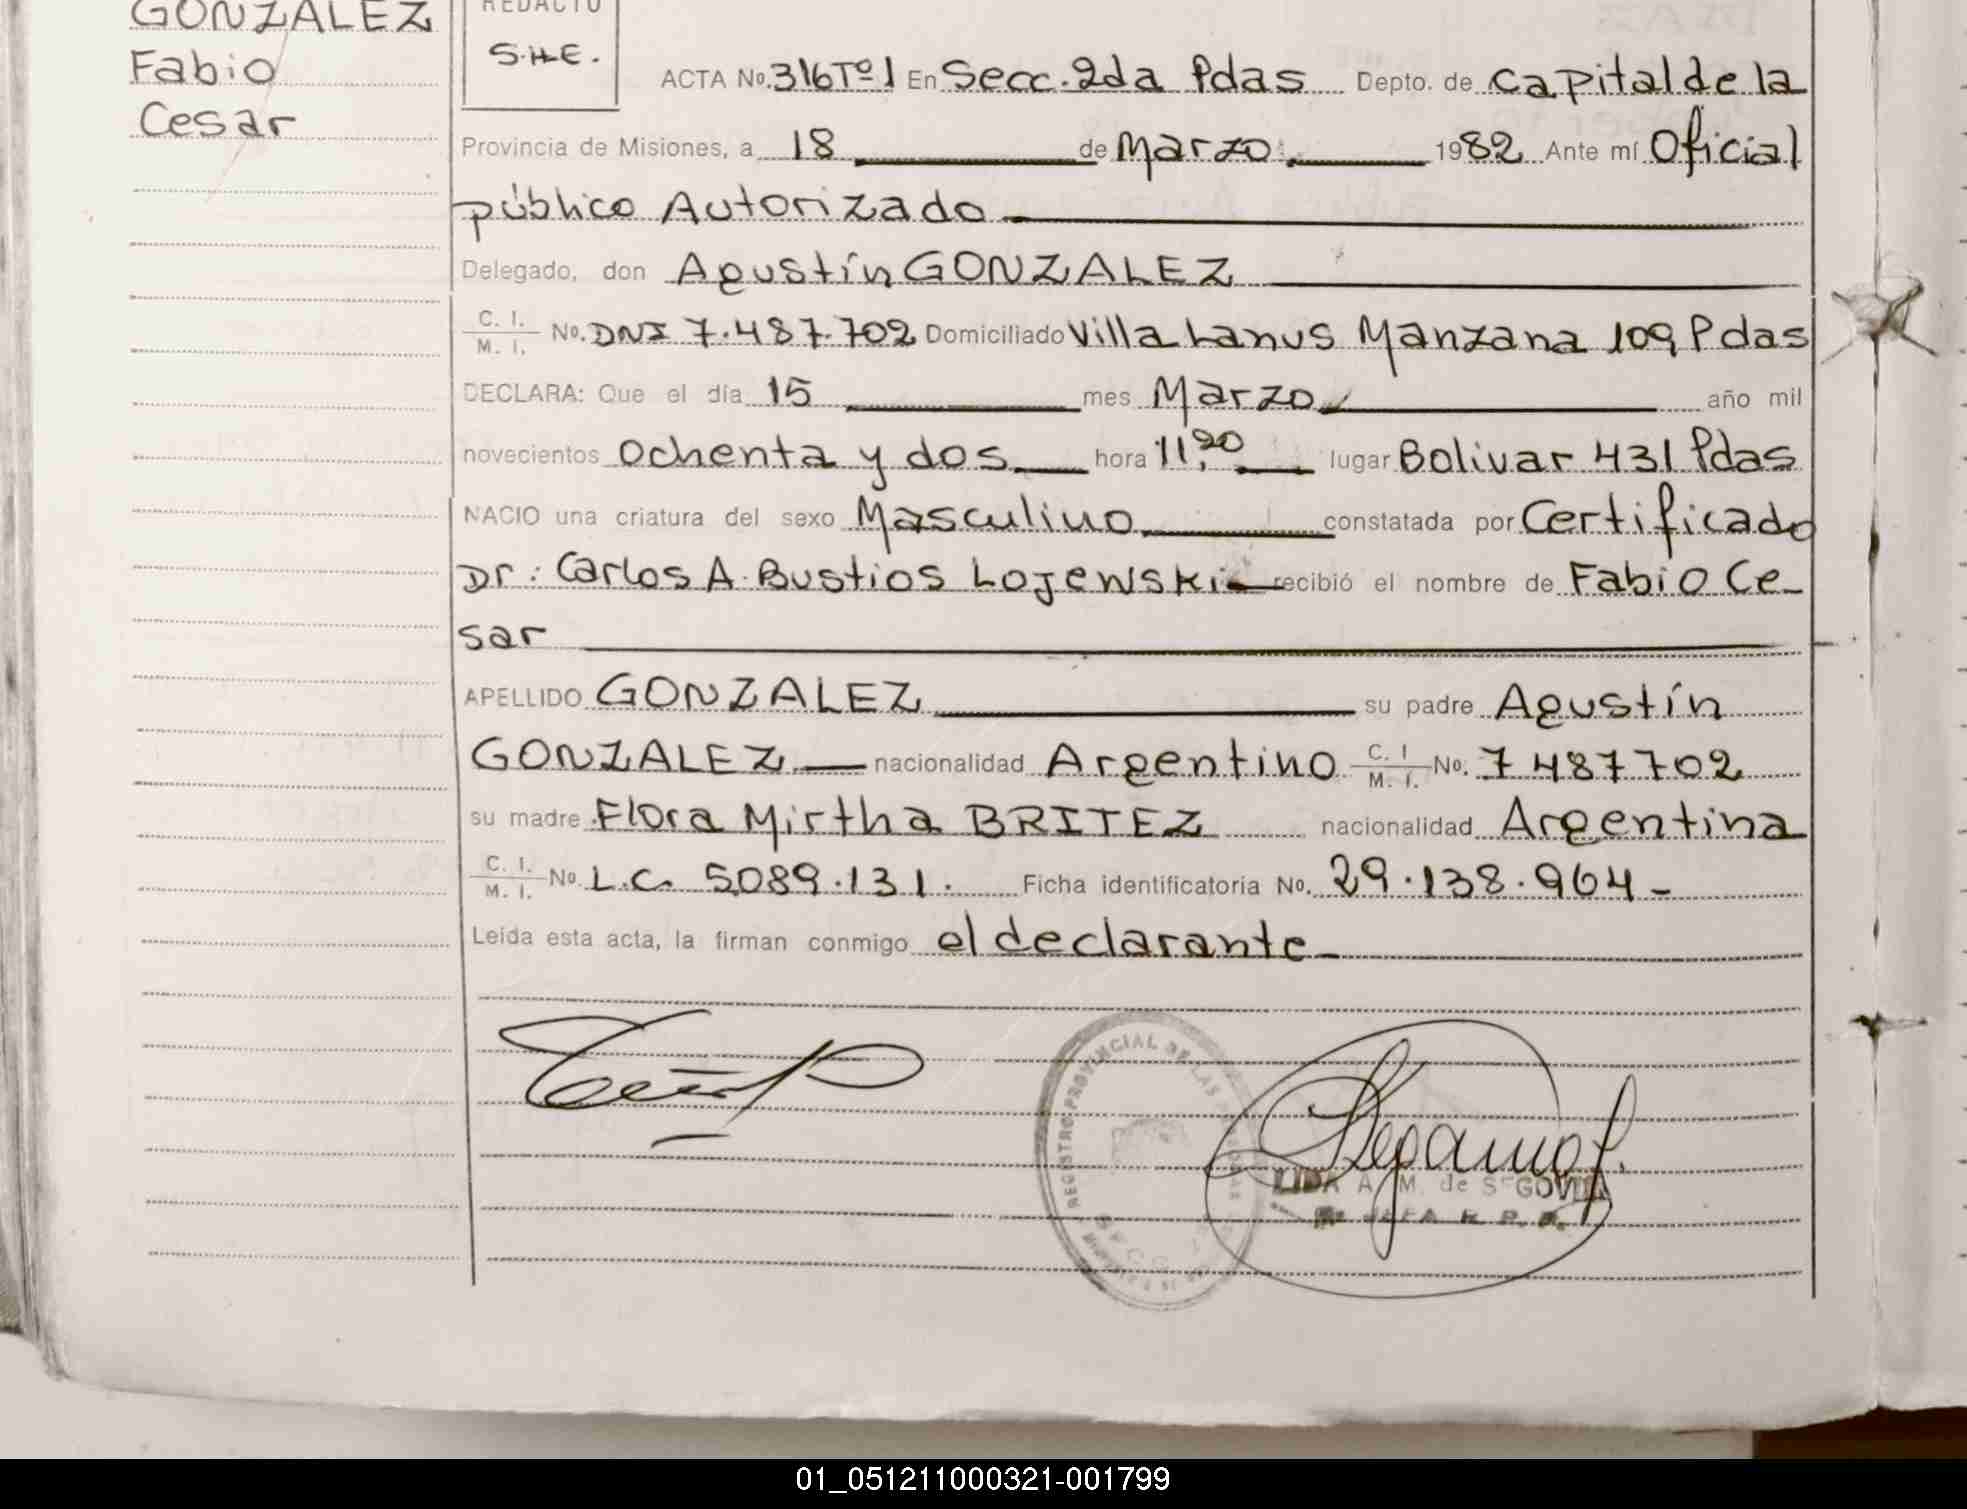 GONZALEZ
Fabio
Cesar
REDACTO
S.H.E.
ACTA No. 316 Tº 1 En Secc. 2da Pdas Depto. de Capital de la
Provincia de Misiones, a 18 de Marzo 1982 Ante mí Oficial
público Autorizado
Delegado, don Agustín GONZALEZ
C. I. / M. I. No. DNI 7.487.702 Domiciliado Villa Lanus Manzana 109, Pdas
DECLARA: Que el día 15 mes Marzo año mil
novecientos Ochenta y dos hora 11,20 lugar Bolivar 431 Pdas
NACIO una criatura del sexo Masculino constatada por Certificado
Dr: Carlos A. Bustios Lojewski recibió el nombre de Fabio Ce-
sar
APELLIDO GONZALEZ su padre Agustín
GONZALEZ nacionalidad Argentino C. I. / M. I. No. 7487702
su madre Flora Mirtha BRITEZ nacionalidad Argentina
C. I. / M. I. No. L.C. 5089.131. Ficha identificatoria No. 29.138.964-
Leída esta acta, la firman conmigo el declarante
REGISTRO PROVINCIAL DE LAS
LIDA A. M. de SEGOVIA
JEFA R. P. P.
01_051211000321-001799